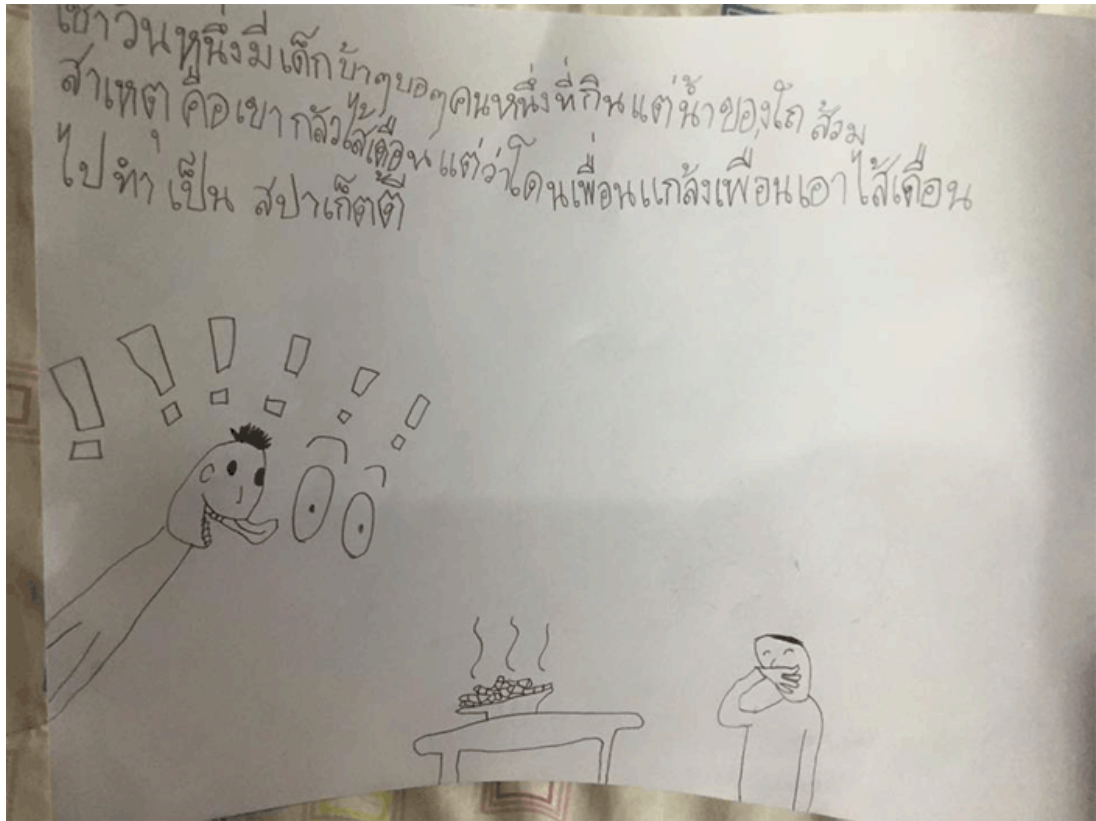 เช้าวันหนึ่งมีเด็กบ้าๆบอๆคนหนึ่งที่กินแต่น้ำของโถส้วม
สาเหตุ คือเขากลัวไส้เดือนแต่ว่าโดนเพื่อนแกล้งเพื่อนเอาไส้เดือน
ไปทำ เป็น สปาเก็ตตี้